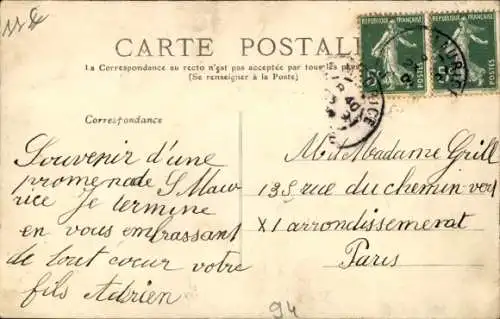 CARTE POSTALE
La Correspondance au recto n'est pas acceptée par tous les pays
(Se renseigner à la Poste)
RÉPUBLIQUE FRANÇAISE
RÉPUBLIQUE FRANÇAISE
Correspondance
Souvenir d'une
promenade S Mau
rice Je termine
en vous embrassant
de tout cœur votre
fils Adrien
M et Madame Grill
135 rue du chemin vert
XI arrondissement
Paris
94